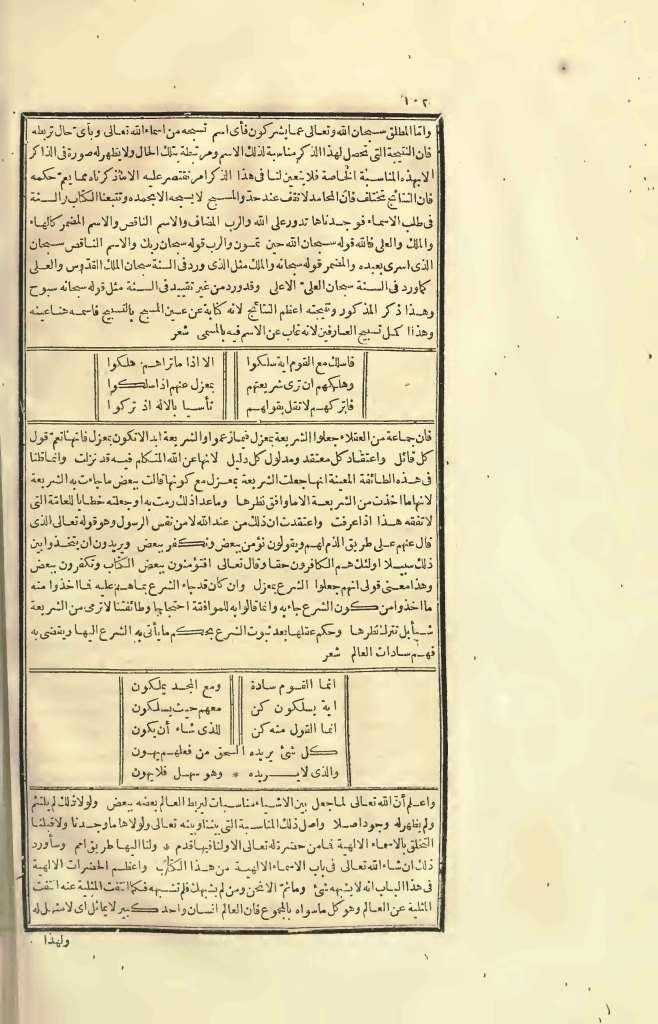 ١٠٢
وامّا المطلق سبحان الله وتعالى عما يشركون فأى اسم تسبحه من اسماء الله تعالى وبأى حال تربطه
فان النتيجة التى تحصل لهذا الذكر مناسبة لذلك الاسم ومرتبطة بتلك الحال ولا يظهر له صورة فى الذاكر
الا بهذه المناسبة الخاصة فلا يتعين لنا فى هذا الذكر امر نقتصر عليه الا ما ذكرناه مما يعمّ حكمه
فان النتائج تختلف فان المحامد لا تقف عند حدّ والمسبح لا يسبحه الا بحمده وتتبعنا الكتاب والسنة
فى طلب الاسماء فوجدناها تدور على الله والرب المضاف والاسم الناقص والاسم المضمر كالهاء
والملك والعلى فالله قوله سبحان الله حين تمسون والرب قوله سبحان ربك والاسم الناقص سبحان
الذى اسرى بعبده والمضمر قوله سبحانه والملك مثل الذى ورد فى السنة سبحان الملك القدّوس والعلى
كما ورد فى السنة سبحان العلىّ الاعلى وقد ورد من غير تقييد فى السنة مثل قوله سبحانه سبوح
وهذا ذكر المذكور ونتيجته اعظم النتائج لانه كناية عن عين المسبح بالتسبيح فاسمه هنا عينه
وهذا اكمل تسبيح العارفين لانه غاب عن الاسم فيه بالمسمى شعر
فاسلك مع القوم اية سلكوا الا اذا ما تراهم هلكوا
وهلكهم ان ترى شريعتهم بمعزل عنهم اذا سلكوا
فاتركهم لا تقل بقولهم تأسيا بالاله اذ تركوا
فان جماعة من العقلاء جعلوا الشريعة بمعزل فيما زعموا والشريعة ابدا لا تكون بمعزل فانها تعمّ قول
كل قائل واعتقاد كل معتقد ومدلول كل دليل لانها عن الله المتكلم فيه قد نزلت وانما قلنا
فى هذه الطائفة المعينة انها جعلت الشريعة بمعزل مع كونها قالت ببعض ما جاءت به الشريعة
لانها ما اخذت من الشريعة الا ما وافق نظرها وما عدا ذلك رمت به او جعلته خطابا للعامة التى
لا تفقه هذا اذا عرفت واعتقدت ان ذلك من عند الله لا من نفس الرسول وهو قوله تعالى الذى
قال عنهم على طريق الذم لهم ويقولون نؤمن ببعض ونكفر ببعض ويريدون ان يتخذوا بين
ذلك سبيلا اولئك هم الكافرون حقا وقال تعالى افتؤمنون ببعض الكتاب وتكفرون ببعض
وهذا معنى قولى انهم جعلوا الشرع بمعزل وان كان قد جاء الشرع بما هم عليه فما اخذوا منه
ما اخذوا من كون الشرع جاء به وانما قالوا به للموافقة احتجاجا وطائفتنا لا ترمى من الشريعة
شيأ بل تترك نظرها وحكم عقلها بعد ثبوت الشرع بحكم ما يأتى به الشرع اليها ويقضى به
فهم سادات العالم شعر
انما القوم سادة ومع المجد يملكون
اية يسلكون كن معهم حيث يسلكون
انما القول منه كن للذى شاء أن يكون
كل شئ يريده الحق من فعلهم يهون
والذى لا يريده * وهو سهل فلا يهون
واعلم أنّ الله تعالى لما جعل بين الاشياء مناسبات ليربط العالم بعضه ببعض ولولا ذلك لم يلتئم
ولم يظهر له وجود اصلا واصل ذلك المناسبة التى بيننا وبينه تعالى ولولاها ما وجدنا ولا قبلنا
التخلق بالاسماء الالهية فما من حضرة له تعالى الا ولنا فيها قدم * ولنا اليها طريق امم وسأورد
ذلك ان شاء الله تعالى فى باب الاسماء الالهية من هذا الكتاب واعظم الحضرات الالهية
فى هذا الباب انه لا يشبهه شئ وما ثمّ الا نحن ومن لم يشبهك فلم تشبهه فكما انتفت المثلية عنه انتفت
المثلية عن العالم وهو كل ما سواه بالمجموع فان العالم انسان واحد كبير لا يماثل اى لا مثل له
ولهذا